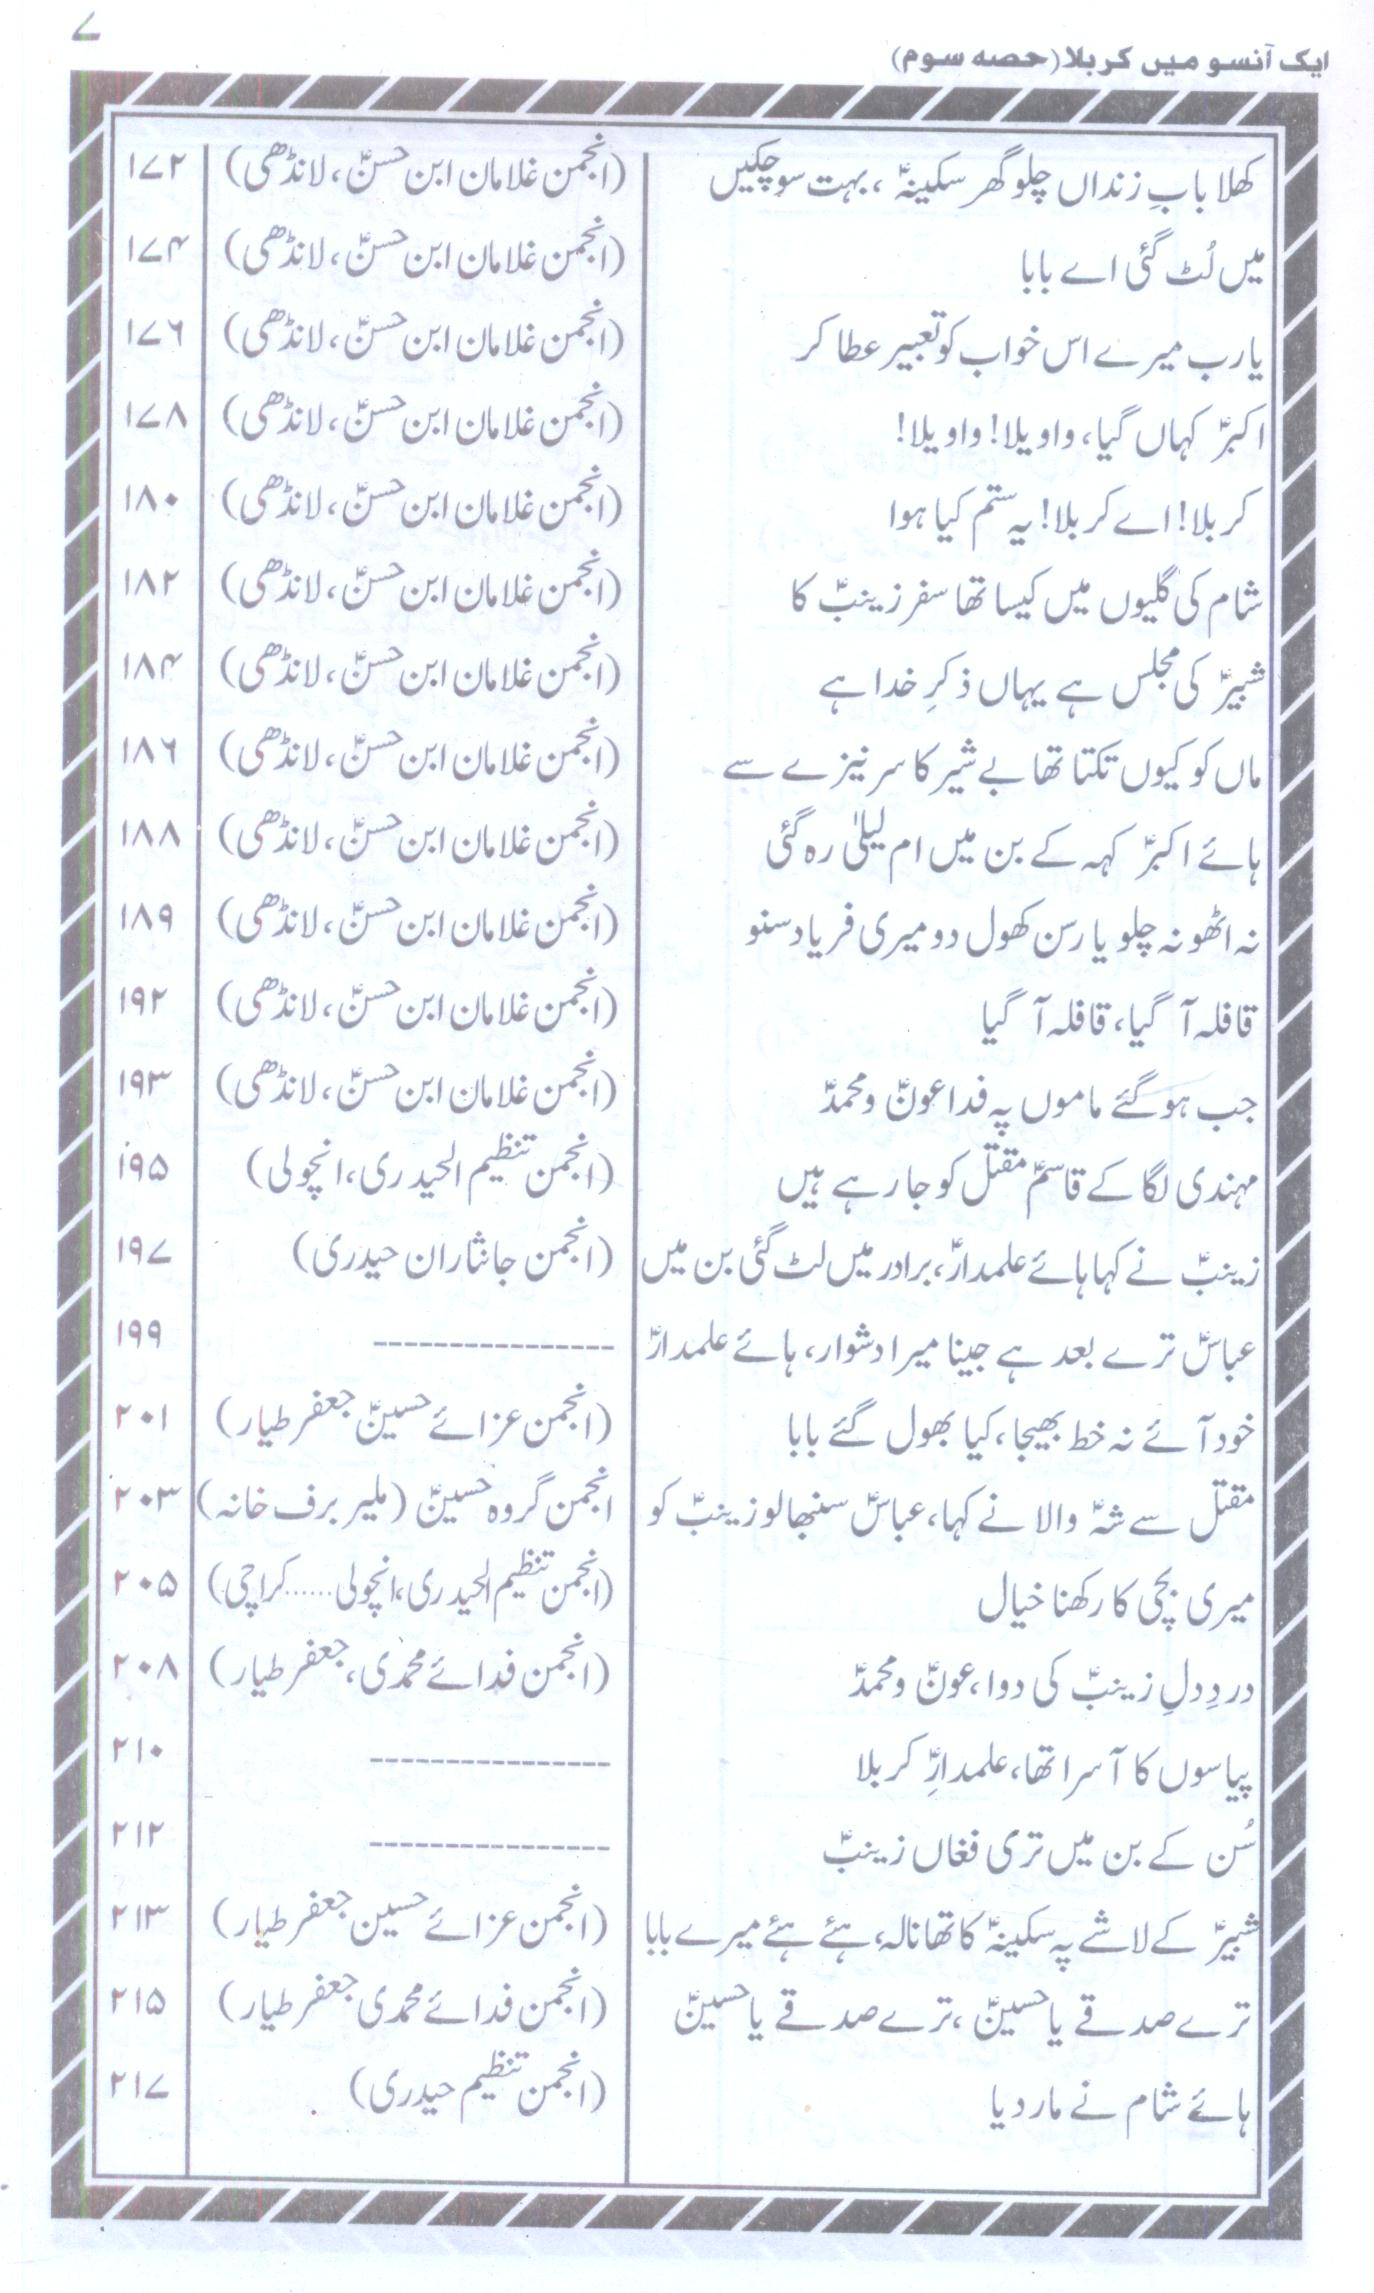 ۷
ایک آنسو میں کربلا (حصہ سوم)
کھلا بابِ زنداں چلو گھر سکینہؑ، بہت سو چکیں (انجمن غلامان ابن حسنؑ، لانڈھی) ۱۷۲
میں لُٹ گئی اے بابا (انجمن غلامان ابن حسنؑ، لانڈھی) ۱۷۴
یارب میرے اس خواب کو تعبیر عطا کر (انجمن غلامان ابن حسنؑ، لانڈھی) ۱۷۶
اکبرؑ کہاں گیا، واویلا! واویلا! (انجمن غلامان ابن حسنؑ، لانڈھی) ۱۷۸
کربلا! اے کربلا! یہ ستم کیا ہوا (انجمن غلامان ابن حسنؑ، لانڈھی) ۱۸۰
شام کی گلیوں میں کیسا تھا سفر زینبؑ کا (انجمن غلامان ابن حسنؑ، لانڈھی) ۱۸۲
شبیرؑ کی مجلس ہے یہاں ذکرِ خدا ہے (انجمن غلامان ابن حسنؑ، لانڈھی) ۱۸۴
ماں کو کیوں تکتا تھا بے شیر کا سر نیزے سے (انجمن غلامان ابن حسنؑ، لانڈھی) ۱۸۶
ہائے اکبرؑ کہہ کے بن میں ام لیلیٰ رہ گئی (انجمن غلامان ابن حسنؑ، لانڈھی) ۱۸۸
نہ اٹھو نہ چلو یا رسن کھول دو میری فریاد سنو (انجمن غلامان ابن حسنؑ، لانڈھی) ۱۸۹
قافلہ آ گیا، قافلہ آ گیا (انجمن غلامان ابن حسنؑ، لانڈھی) ۱۹۲
جب ہوگئے ماموں پہ فدا عونؑ و محمدؑ (انجمن غلامان ابن حسنؑ، لانڈھی) ۱۹۳
مہندی لگا کے قاسمؑ مقتل کو جا رہے ہیں (انجمن تنظیم الحیدری، انچولی) ۱۹۵
زینبؑ نے کہا ہائے علمدارؑ، برادر میں لٹ گئی بن میں (انجمن جانثاران حیدری) ۱۹۷
عباسؑ ترے بعد ہے جینا میرا دشوار، ہائے علمدارؑ ---------------- ۱۹۹
خود آئے نہ خط بھیجا، کیا بھول گئے بابا (انجمن عزائے حسینؑ جعفر طیار) ۲۰۱
مقتل سے شہؑ والا نے کہا، عباسؑ سنبھالو زینبؑ کو انجمن گروہ حسینؑ (ملیر برف خانہ) ۲۰۳
میری بچی کا رکھنا خیال (انجمن تنظیم الحیدری، انچولی......کراچی) ۲۰۵
دردِ دلِ زینبؑ کی دوا، عونؑ و محمدؑ (انجمن فدائے محمدی، جعفر طیار) ۲۰۸
پیاسوں کا آسرا تھا، علمدارِؑ کربلا ---------------- ۲۱۰
سُن کے بن میں تری فغاں زینبؑ ---------------- ۲۱۲
شبیرؑ کے لاشے پہ سکینہؑ کا تھا نالہ، ہئے ہئے میرے بابا (انجمن عزائے حسین جعفر طیار) ۲۱۳
ترے صدقے یا حسینؑ، ترے صدقے یا حسینؑ (انجمن فدائے محمدی جعفر طیار) ۲۱۵
ہائے شام نے مار دیا (انجمن تنظیم حیدری) ۲۱۷